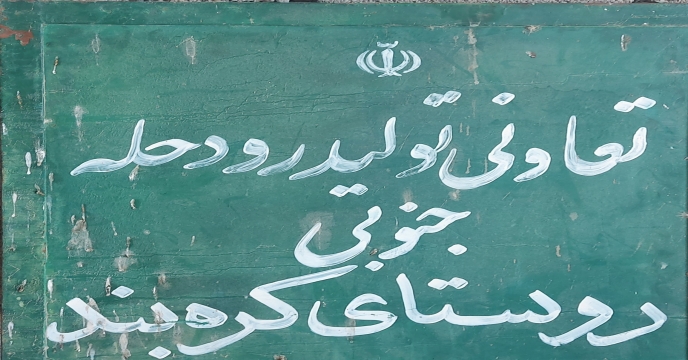 تعاونی تولید رود حله
جنوبی
روستای کره بند